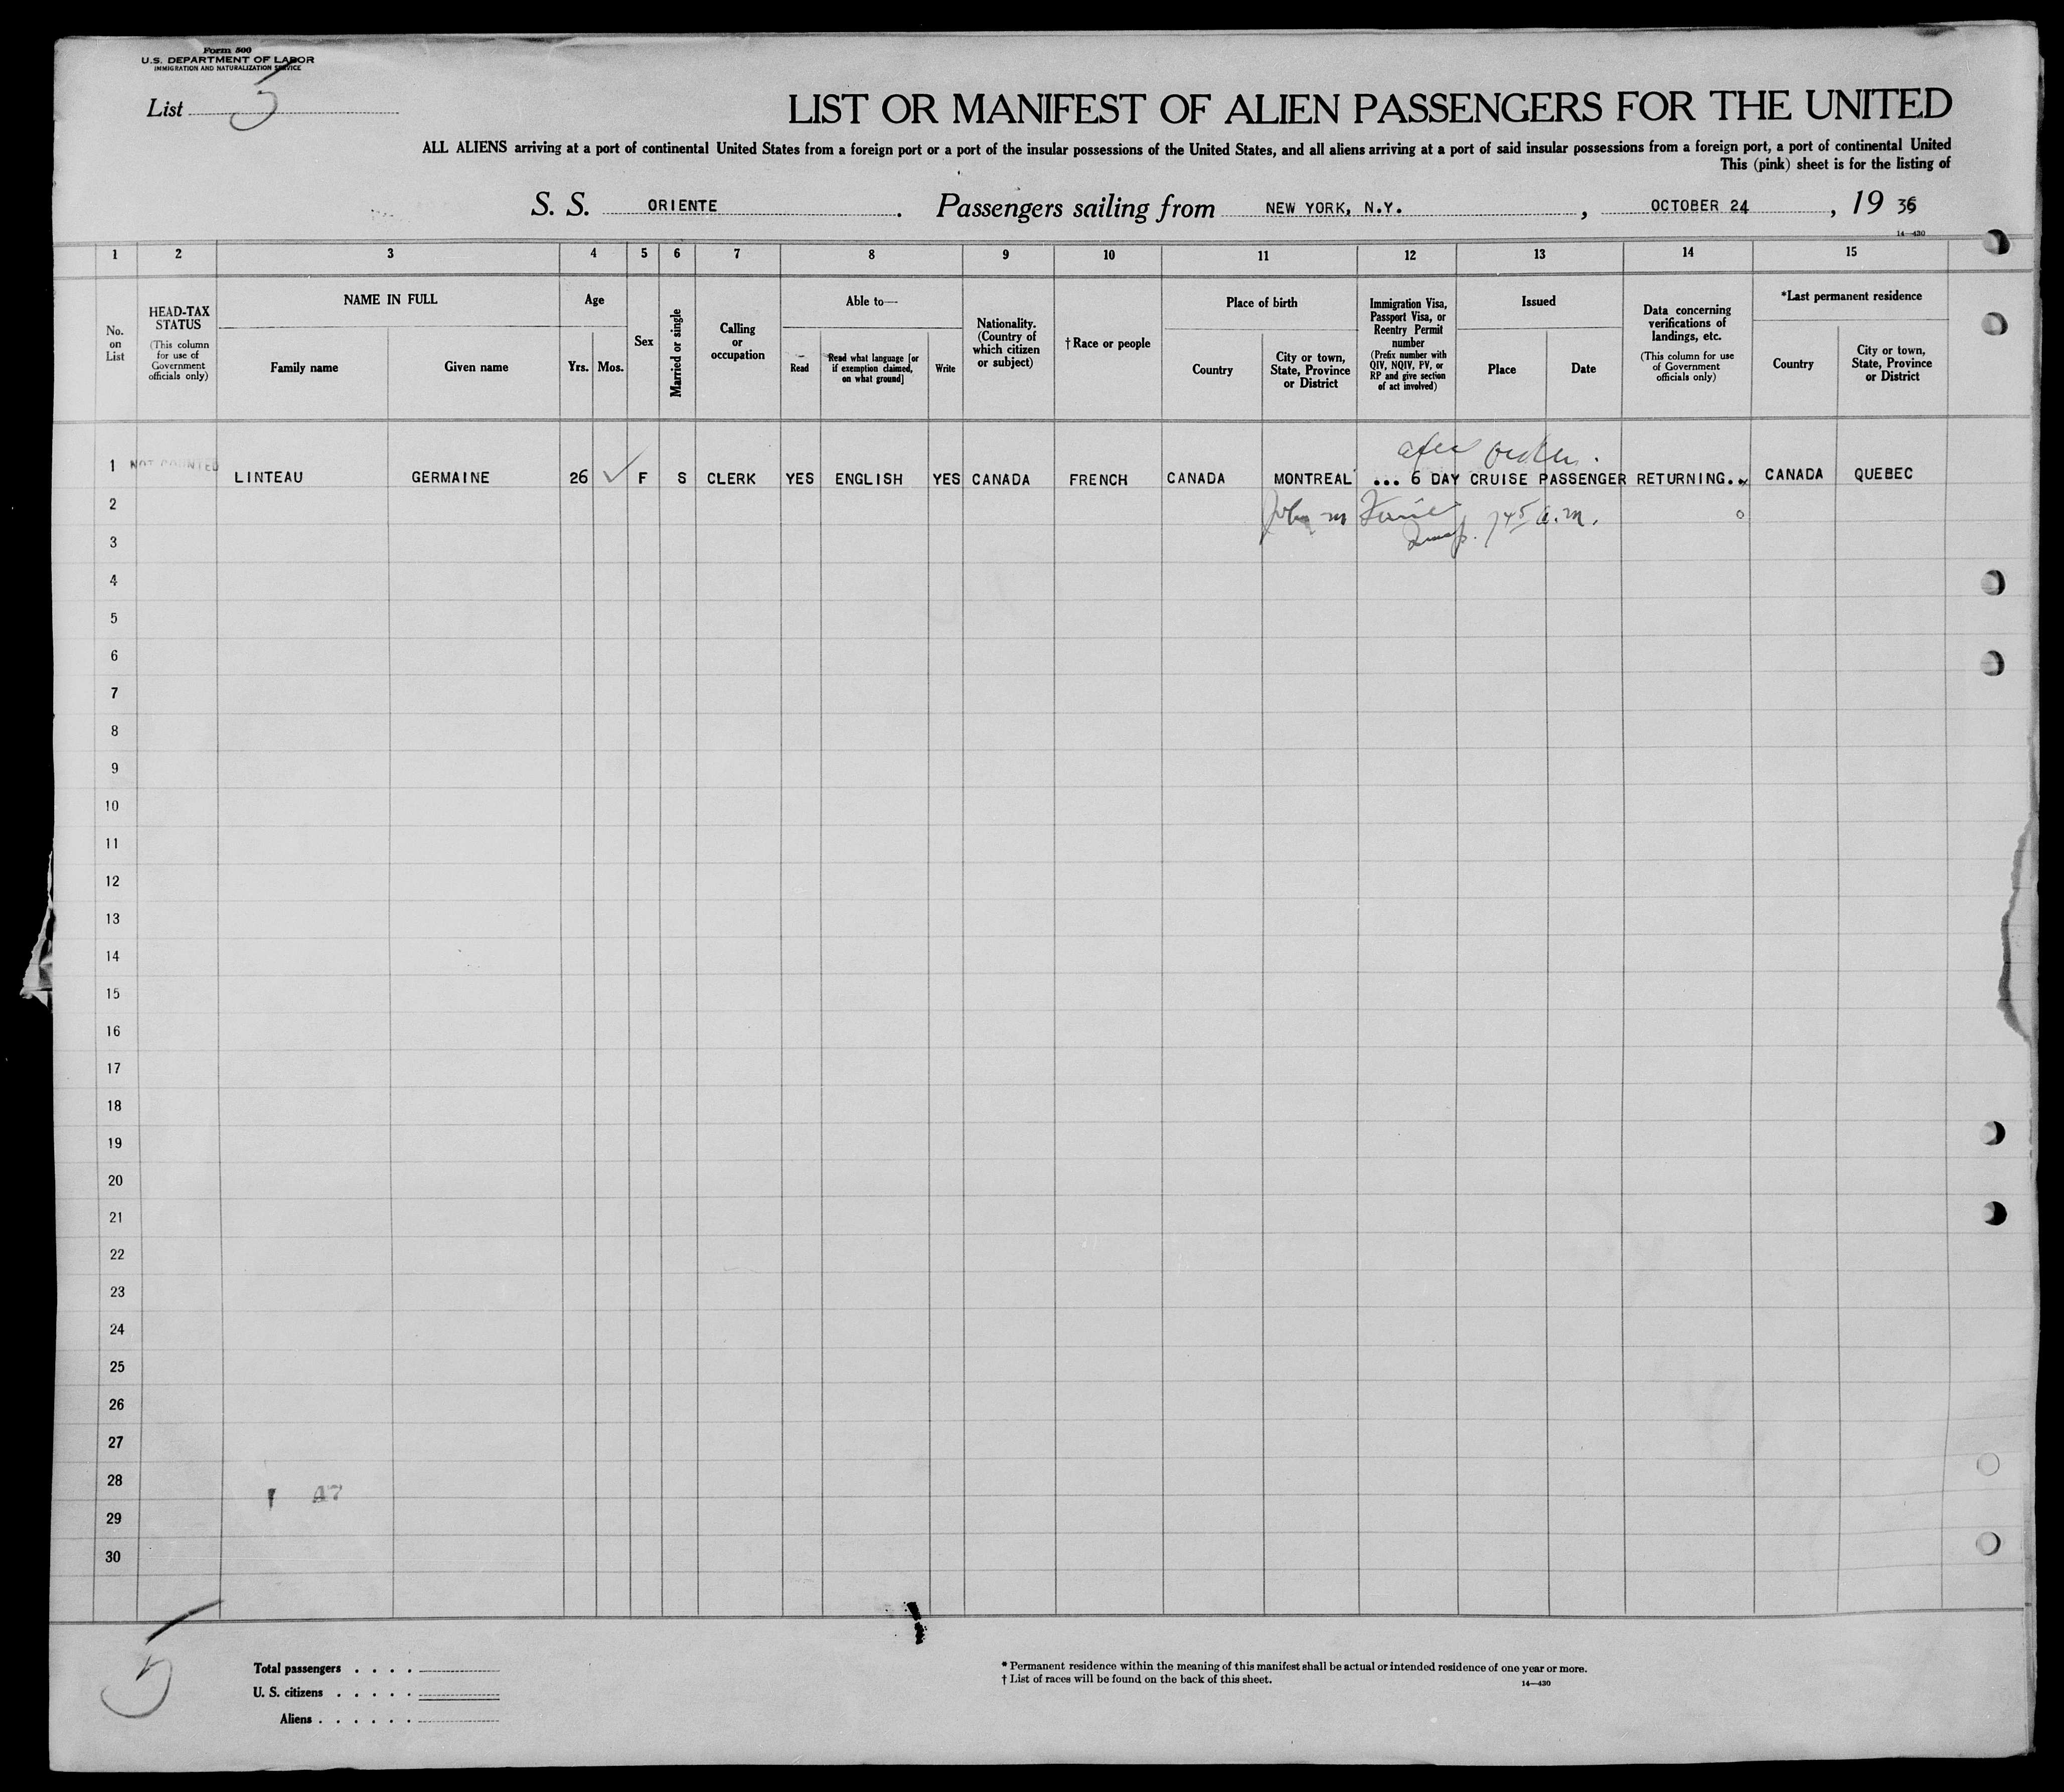 Form 500
U.S. DEPARTMENT OF LABOR
IMMIGRATION AND NATURALIZATION SERVICE
List 5
LIST OR MANIFEST OF ALIEN PASSENGERS FOR THE UNITED
ALL ALIENS arriving at a port of continental United States from a foreign port or a port of the insular possessions of the United States, and all aliens arriving at a port of said insular possessions from a foreign port, a port of continental United
This (pink) sheet is for the listing of
S. S. ORIENTE. Passengers sailing from NEW YORK, N.Y., OCTOBER 24, 19 36
14—430
1 2 3 4 5 6 7 8 9 10 11 12 13 14 15
No. on List
HEAD-TAX STATUS
(This column for use of Government officials only)
NAME IN FULL
Family name
Given name
Age
Yrs. Mos.
Sex
Married or single
Calling or occupation
Able to—
Read
Read what language [or if exemption claimed, on what ground]
Write
Nationality. (Country of which citizen or subject)
†Race or people
Place of birth
Country
City or town, State, Province or District
Immigration Visa, Passport Visa, or Reentry Permit number
(Prefix number with QIV, NQIV, PV, or RP and give section of act involved)
Issued
Place
Date
Data concerning verifications of landings, etc.
(This column for use of Government officials only)
*Last permanent residence
Country
City or town, State, Province or District
1 NOT COUNTED LINTEAU GERMAINE 26 ✓ F S CLERK YES ENGLISH YES CANADA FRENCH CANADA MONTREAL ... 6 DAY CRUISE PASSENGER RETURNING.. CANADA QUEBEC
2 John m
3 Insp. 7 45 a.m.
4
5
6
7
8
9
10
11
12
13
14
15
16
17
18
19
20
21
22
23
24
25
26
27
28
29
30
5
Total passengers . . . .
U. S. citizens . . . . .
Aliens . . . . . .
* Permanent residence within the meaning of this manifest shall be actual or intended residence of one year or more.
† List of races will be found on the back of this sheet.
14—430